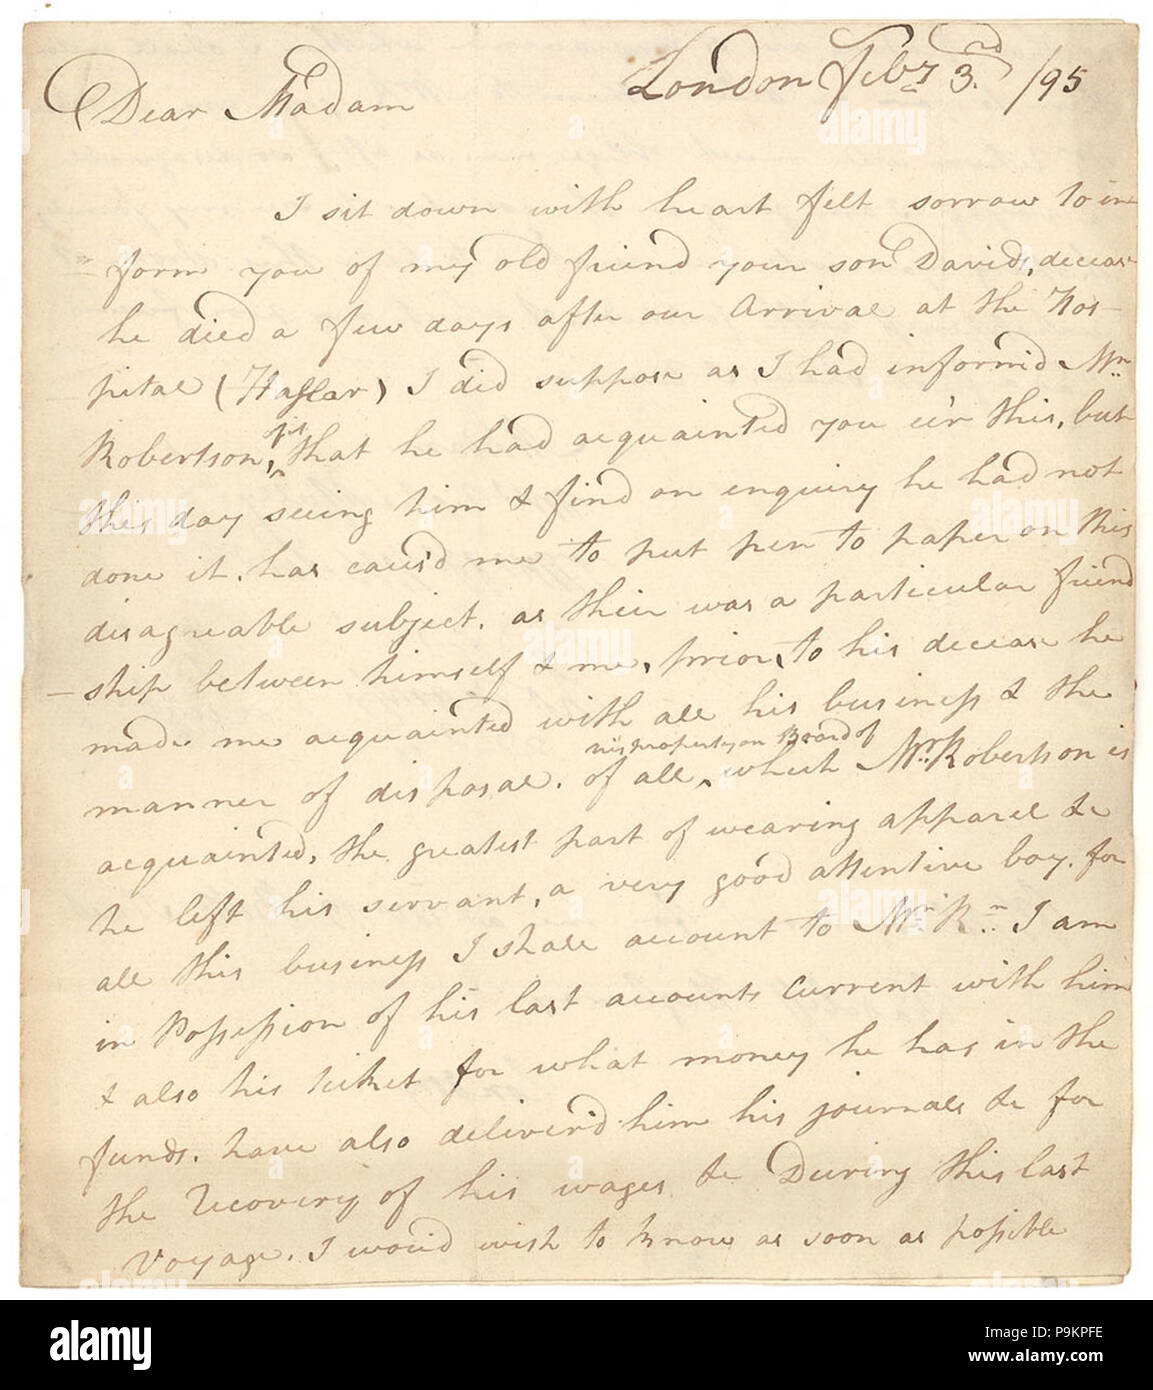 London Feby 3.rd /95
Dear Madam
I sit down with heart felt sorrow to in
= form you of my old friend your son David,s, deceas
he died a few days after our Arrival at the Hos–
pital (Haslar) I did suppose as I had informd Mr
Robertson, of is that he had acquainted you e'er this, but
this day seeing him & find on enquiry he had not
done it. has caus'd me to put pen to paper on this
disagreable subject. as their was a particular friend
– ship between himself & me, prior, to his decease he
made me acquainted with all his business & the
manner of disposal. of all, his property on Board of which Mr. Robertson is
acquainted, the greatest part of wearing apparel &c
he left his servant, a very good attentive boy. for
all this business I shall account to Mr. R.n I am
in Possession of his last accounts current with him
& also his ticket for what money he has in the
funds. have also deliver'd him his journals &c for
the recovery of his wages &c During this last
Voyage. I wou'd wish to know as soon as possible
alamy
Image ID: P9KPFE
www.alamy.com